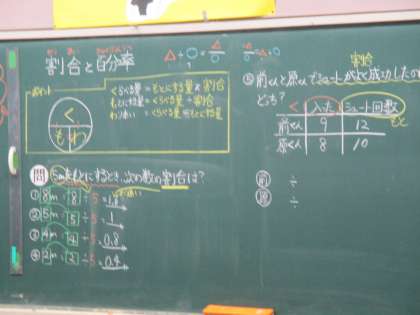 割合と百分率
△÷○=△/○
ポイント
く
も わ
くらべる量 = もとにする量 × 割合
もとにする量 = くらべる量 ÷ 割合
わりあい = くらべる量 ÷ もとにする量
問 5mをもとにするとき、次の数の割合は?
① 8m 8÷5=1.6
② 5m 5÷5=1
③ 4m 4÷5=0.8
④ 2m 2÷5=0.4
割合
前くんと原くんでシュートがよく成功したの
どち?
く 入た シュート回数 もと
前くん 9 12
原くん 8 10
前 ÷
原 ÷